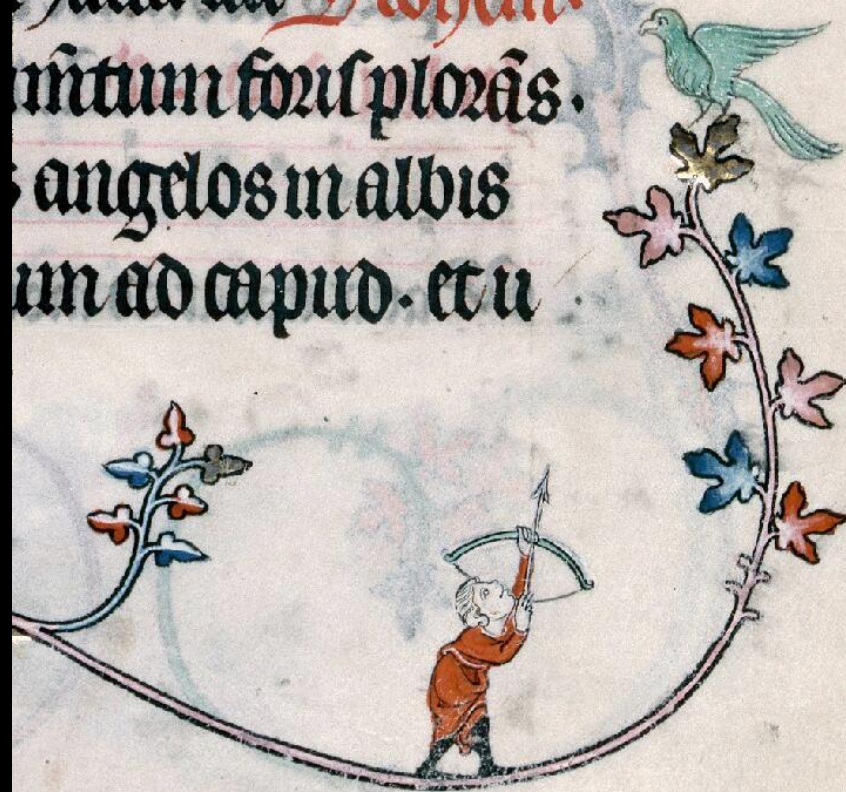 m̄tum foriſ plorās.
s angelos in albis
um ad capud. et u